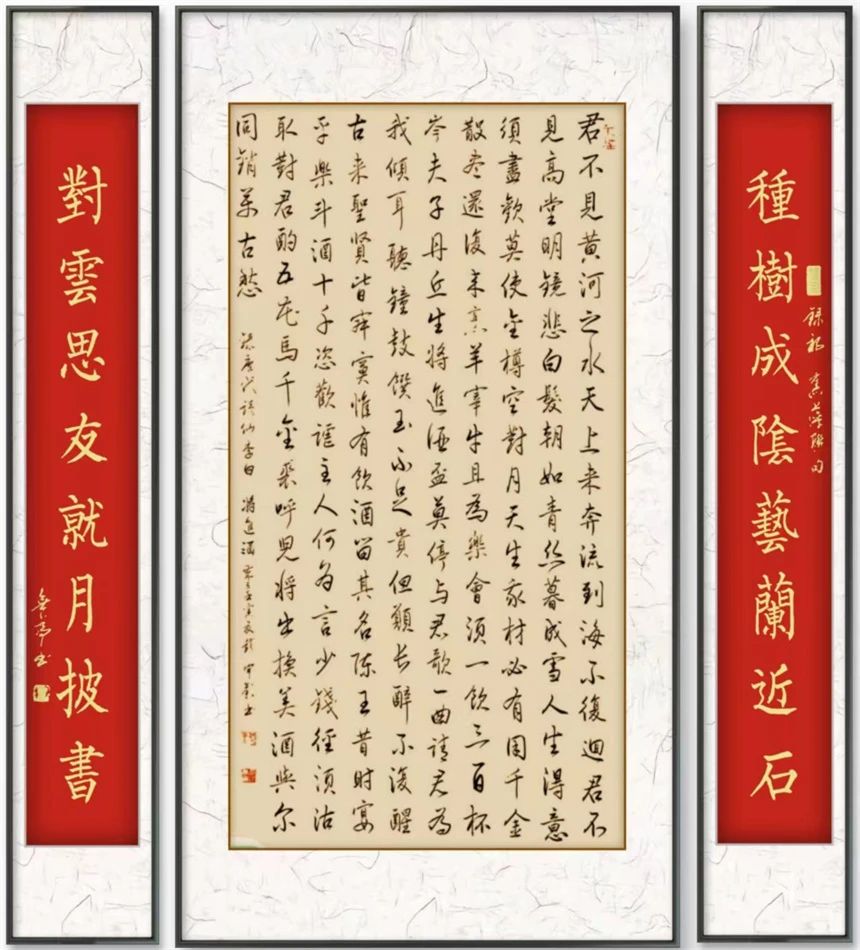 種樹成陰藝蘭近石
君不見黄河之水天上来奔流到海不復迴君不
見高堂明鏡悲白髮朝如青丝暮成雪人生得意
須盡歡莫使金樽空對月天生我材必有用千金
散盡還復来烹羊宰牛且為樂會須一飲三百杯
岑夫子丹丘生将進酒盃莫停与君歌一曲請君為
我傾耳聽鐘鼓饌玉不足貴但願长醉不復醒
古来聖賢皆寂寞惟有飲酒留其名陈王昔時宴
平樂斗酒十千恣歡謔主人何為言少錢徑須沽
取對君酌五花馬千金裘呼兒将出换美酒與尔
同銷萬古愁
唐代詩仙李白将進酒
對雲思友就月披書